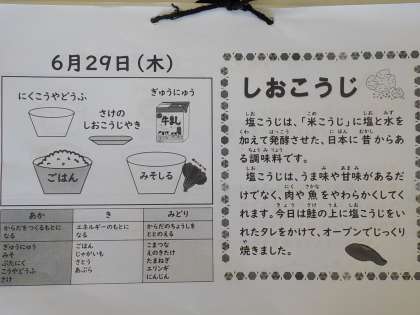 6月29日(木)
にくこうやどうふ
ぎゅうにゅう
さけの
しおこうじやき
牛乳
ごはん
みそしる
あか き みどり
からだをつくるもとに
なる
エネルギーのもとに
なる
からだのちょうしを
ととのえる
ぎゅうにゅう
みそ
ぶたにく
こうやどうふ
さけ
ごはん
じゃがいも
さとう
あぶら
こまつな
えのきたけ
たまねぎ
エリンギ
にんじん
しおこうじ
塩こうじは、「米こうじ」に塩と水を
加えて発酵させた、日本に昔からあ
る調味料です。
塩こうじは、うま味や甘味があるだ
けでなく、肉や魚をやわらかくしてく
れます。今日は鮭の上に塩こうじをい
れたタレをかけて、オーブンでじっくり
焼きました。